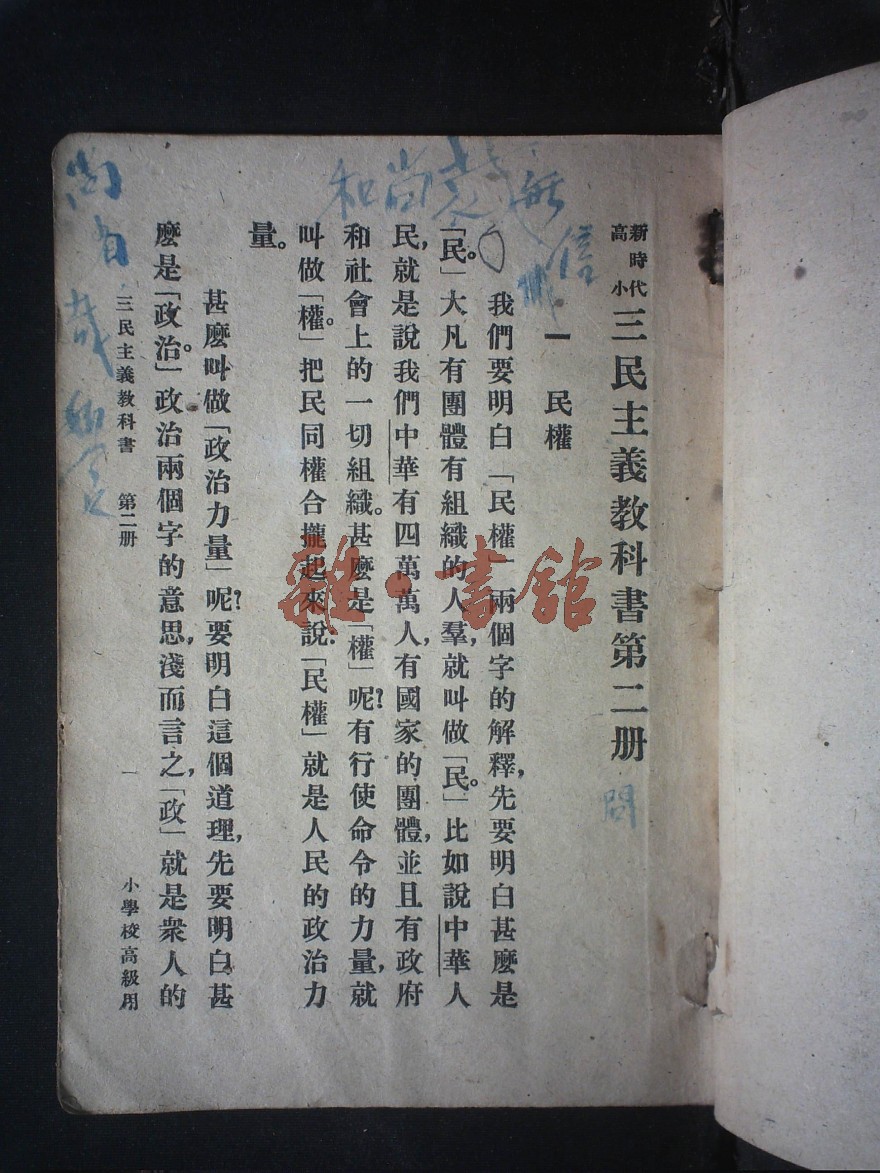 新時代
高小
三民主義教科書第二册
問
一　民權
我們要明白「民權」兩個字的解釋，先要明白甚麽是
「民。」大凡有團體有組織的人羣，就叫做「民。」比如說中華人
民，就是說我們中華有四萬萬人，有國家的團體，並且有政府
和社會上的一切組織。甚麽是「權」呢？有行使命令的力量，就
叫做「權。」把民同權合攏起來說：「民權」就是人民的政治力
量。
甚麽叫做「政治力量」呢？要明白這個道理，先要明白甚
麽是「政治。」政治兩個字的意思，淺而言之，「政」就是衆人的
三民主義教科書　第二册　一　小學校高級用
和尚
信
尚
雜·書館